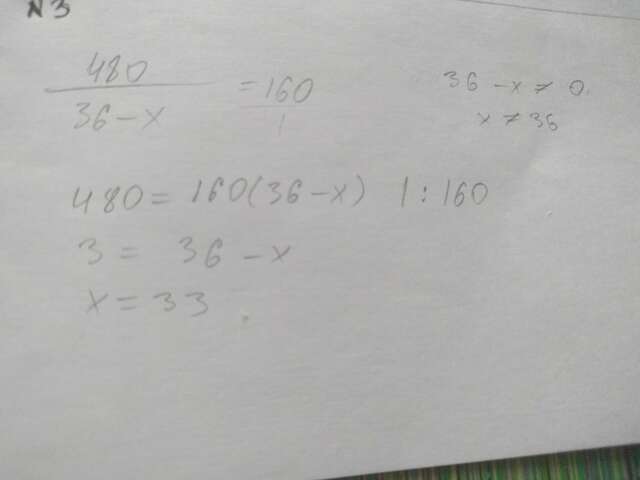 N3
480 / 36 - x = 160 / 1
36 - x ≠ 0
x ≠ 36
480 = 160(36 - x) | : 160
3 = 36 - x
x = 33